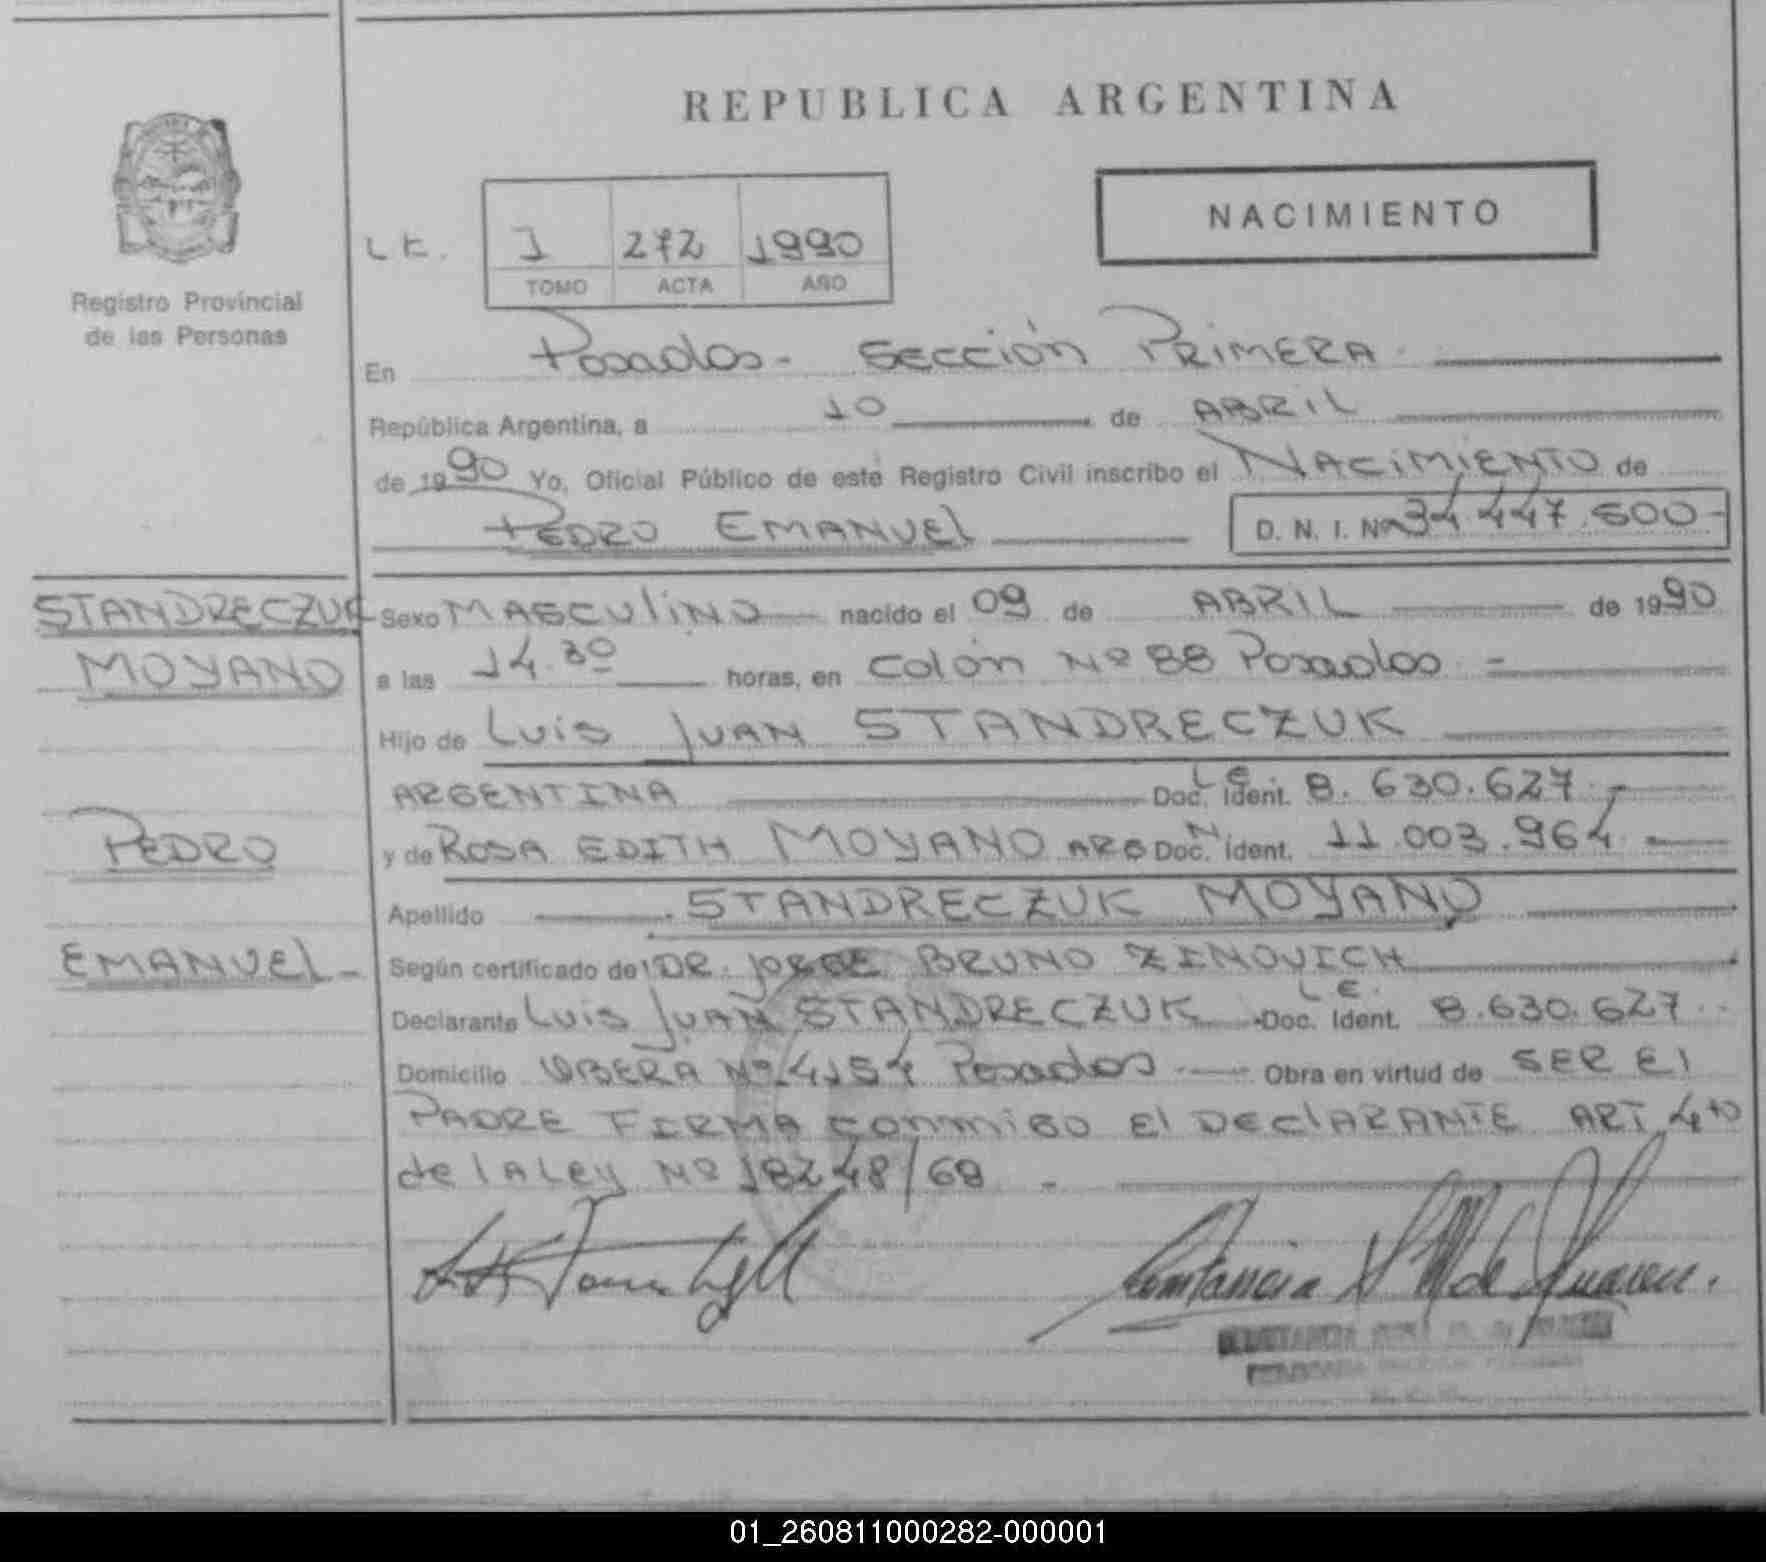 REPUBLICA ARGENTINA
NACIMIENTO
Registro Provincial
de las Personas
L E. 1 272 1990
TOMO ACTA AÑO
En Posadas - SECCIÓN PRIMERA
República Argentina, a 10 de ABRIL
de 1990 Yo, Oficial Público de este Registro Civil inscribo el NACIMIENTO de
PEDRO EMANUEL D. N. I. Nº 34.447.500-
STANDRECZUK
MOYANO
PEDRO
EMANUEL -
Sexo MASCULINO nacido el 09 de ABRIL de 1990
a las 14.30 horas, en COLÓN Nº 88 Posadas -
Hijo de LUIS JUAN STANDRECZUK
ARGENTINA Doc. Ident. L E 8.630.627
y de ROSA EDITH MOYANO ARG Doc. N Ident. 11.003.964
Apellido STANDRECZUK MOYANO
Según certificado del DR. JORGE BRUNO ZINOVICH
Declarante LUIS JUAN STANDRECZUK Doc. Ident. L E. 8.630.627
Domicilio OBERA Nº 4154 Posadas Obra en virtud de SER El
PADRE FIRMA CONMIGO El DECLARANTE ART 4to
de lA Ley Nº 18248/69 -
01_260811000282-000001